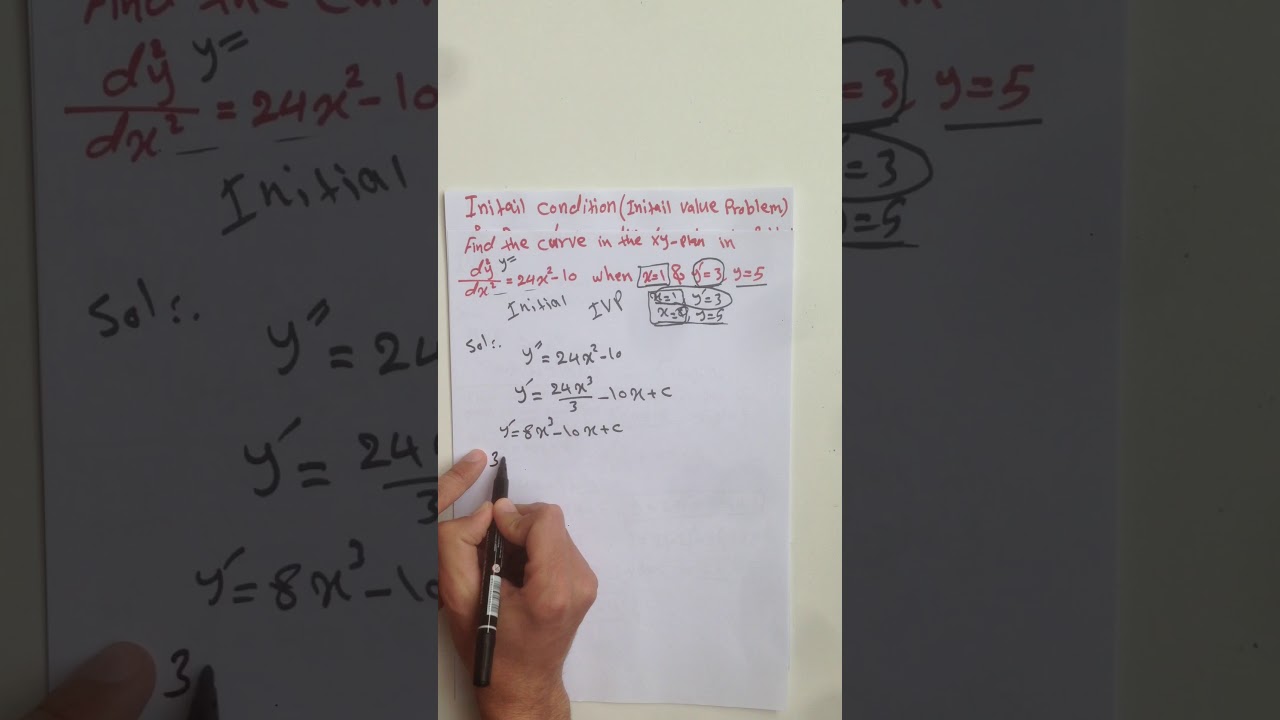 Initail condition (Initail value Problem)
Find the curve in the xy-plan in
y″=
d²y/dx² = 24x²-10 when x=1 & y′=3, y=5
Initial IVP x=1, y′=3
y=5
Sol:.
y″ = 24x²-10
y′ = 24x³/3 - 10x + c
y′ = 8x³ - 10x + c
3